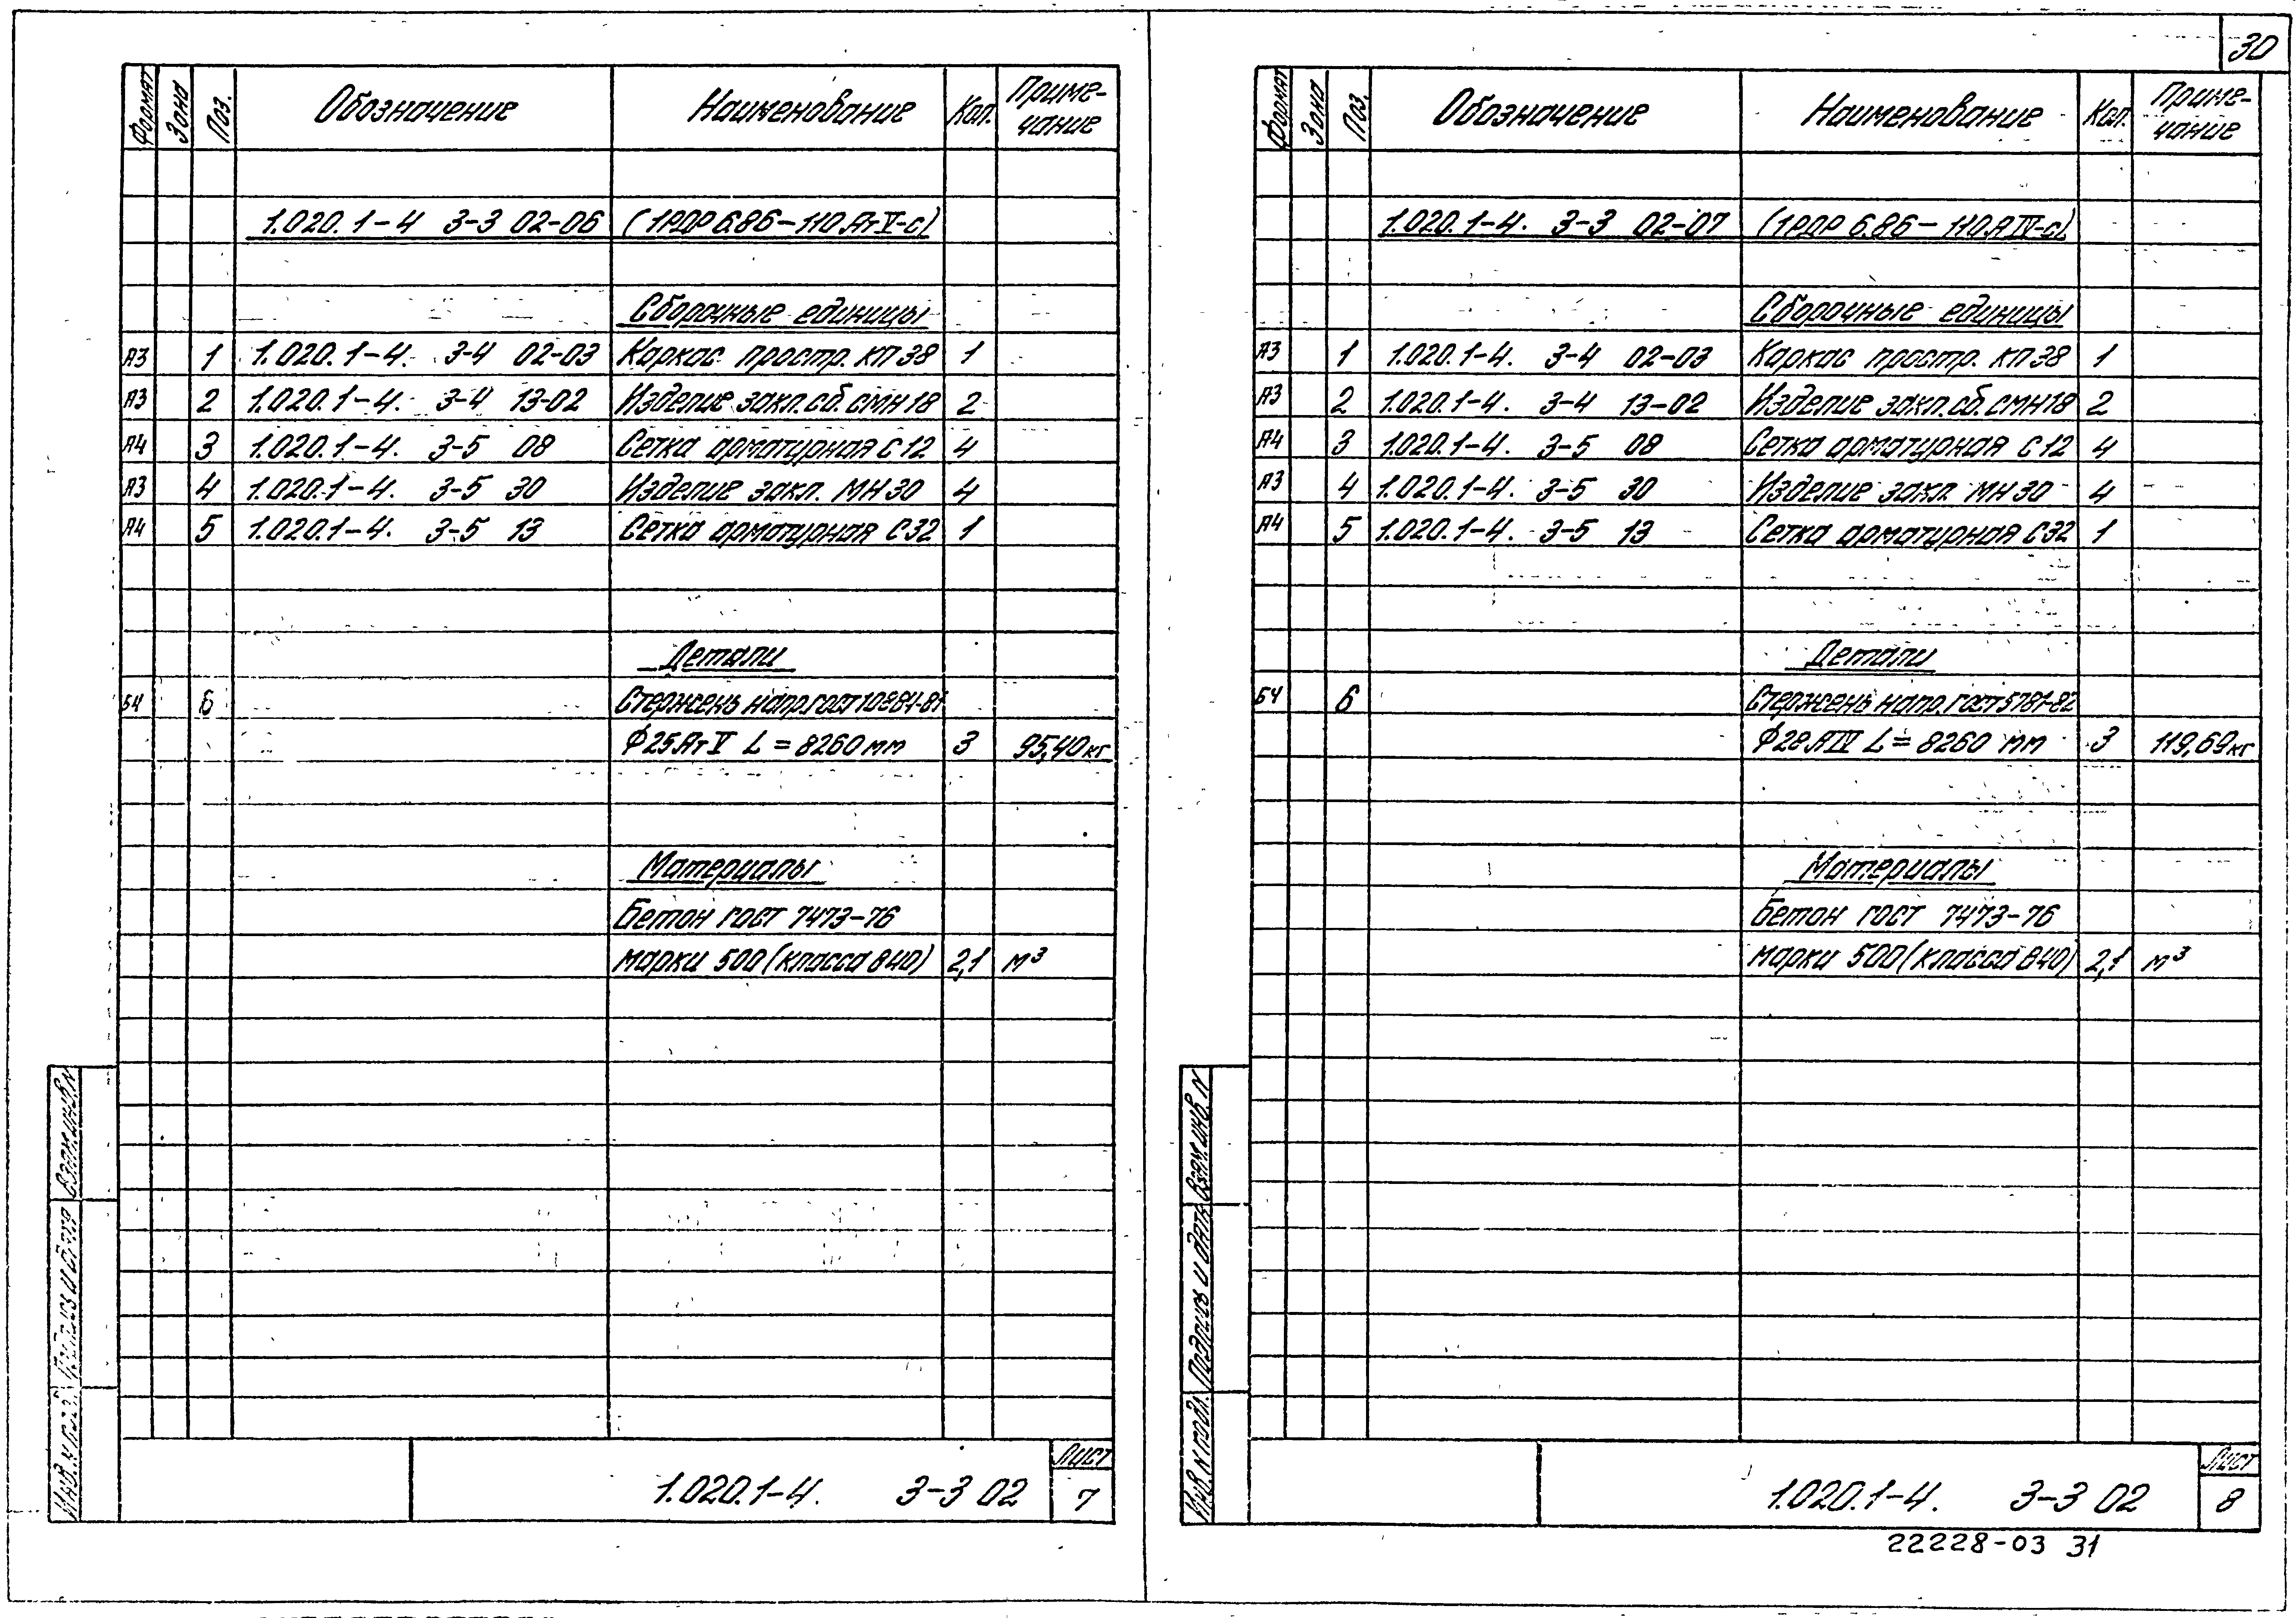 30
Формат Зона Поз. Обозначение Наименование Кол. Приме-
чание
1.020.1-4 3-3 02-06 (1РДР 6.86-110.АтV-с)
Сборочные единицы
А3 1 1.020.1-4. 3-4 02-03 Каркас простр. КП38 1
А3 2 1.020.1-4. 3-4 13-02 Изделие закл.сб. СМН18 2
А4 3 1.020.1-4. 3-5 08 Сетка арматурная С12 4
А3 4 1.020.1-4. 3-5 30 Изделие закл. МН30 4
А4 5 1.020.1-4. 3-5 13 Сетка арматурная С32 1
Детали
Б4 6 Стержень напр.гост 10884-81
Ф25АтV L=8260мм 3 95,40кг
Материалы
Бетон гост 7473-76
марки 500 (класса В40) 2,1 м³
Инв.N подл. Подпись и дата Взам.инв.N
1.020.1-4. 3-3 02
Лист
7
Формат Зона Поз. Обозначение Наименование Кол. Приме-
чание
1.020.1-4. 3-3 02-07 (1РДР 6.86-110.АIV-с)
Сборочные единицы
А3 1 1.020.1-4. 3-4 02-03 Каркас простр. КП38 1
А3 2 1.020.1-4. 3-4 13-02 Изделие закл.сб. СМН18 2
А4 3 1.020.1-4. 3-5 08 Сетка арматурная С12 4
А3 4 1.020.1-4. 3-5 30 Изделие закл. МН30 4
А4 5 1.020.1-4. 3-5 13 Сетка арматурная С32 1
Детали
БЧ 6 Стержень напр. гост 5781-82
Ф28АIV L=8260 мм 3 119,69кг
Материалы
Бетон гост 7473-76
марки 500 (класса В40) 2,1 м³
Инв.N подл. Подпись и дата Взам.инв.N
1.020.1-4. 3-3 02
Лист
8
22228-03 31